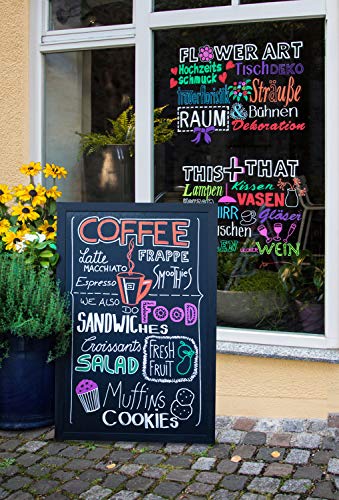 FLOWER ART
Hochzeits
schmuck
TischDEKO
Trauerfloristik
Sträuße
RAUM
& Bühnen
Dekoration
THIS + THAT
Lampen
Kissen
VASEN
IRR
Gläser
schen
EN
WEIN
COFFEE
Latte
MACCHIATO
FRAPPE
Espresso
Smoothies
WE ALSO DO
FOOD
SANDWICHES
Croissants
SALAD
FRESH
FRUIT
Muffins
COOKIES